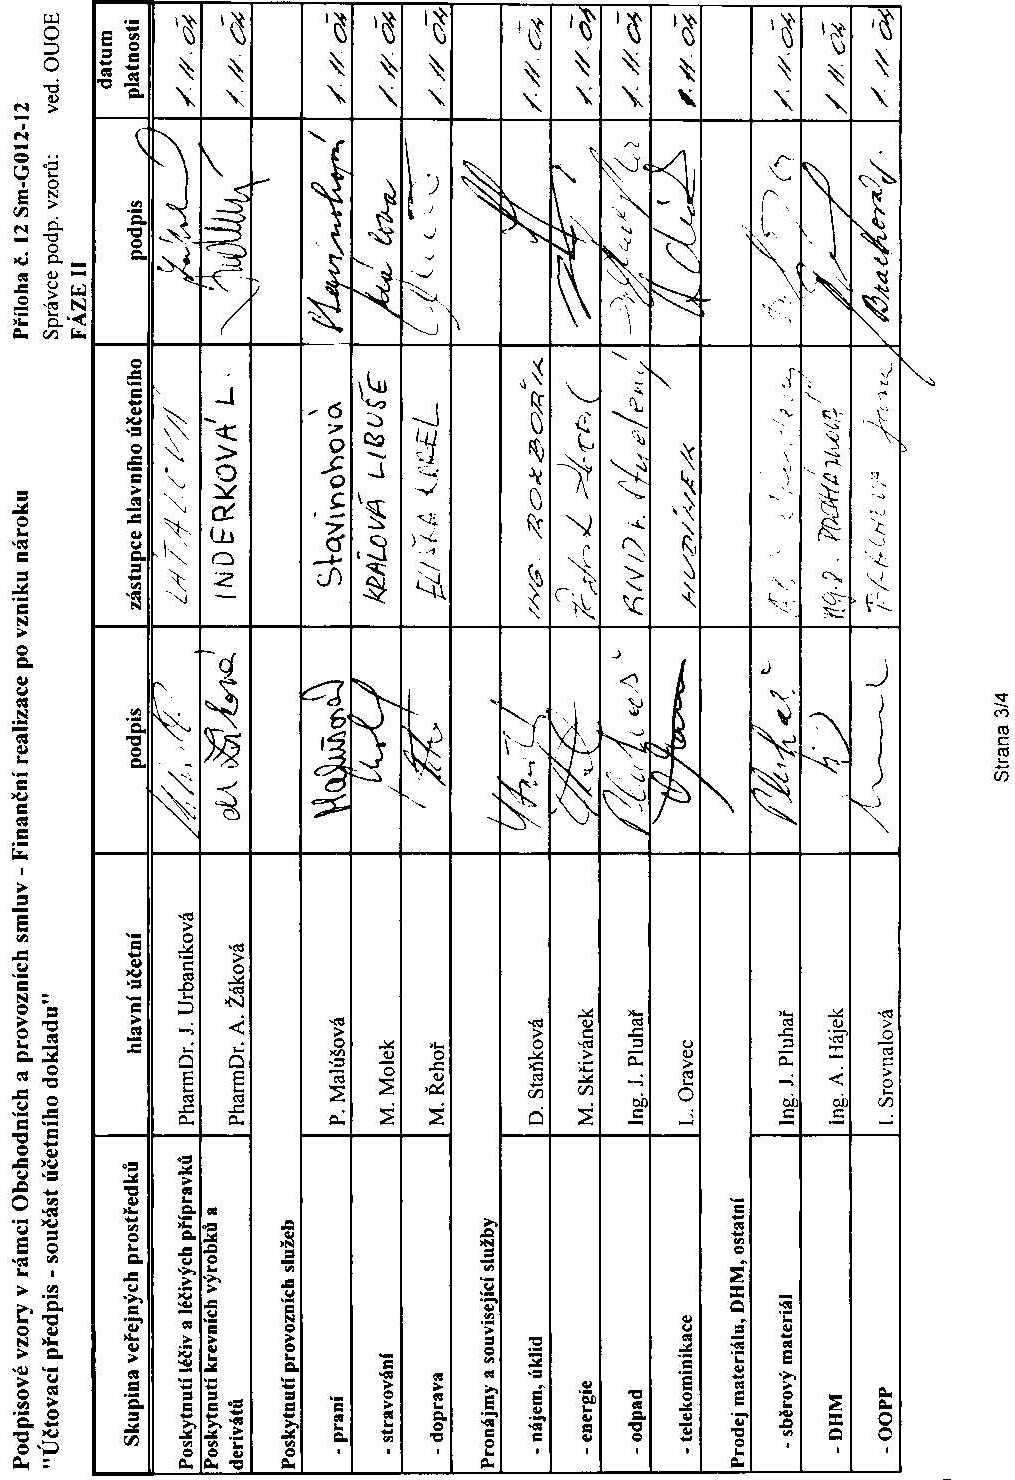 Příloha č. 12 Sm-G012-12
Podpisové vzory v rámci Obchodních a provozních smluv - Finanční realizace po vzniku nároku
Správce podp. vzorů: ved. OUOE
"Účtovací předpis - součást účetního dokladu"
FÁZE II
Skupina veřejných prostředků hlavní účetní podpis zástupce hlavního účetního podpis datum platnosti
Poskytnutí léčiv a léčivých přípravků PharmDr. J. Urbaníková 1.11.04
Poskytnutí krevních výrobků a derivátů PharmDr. A. Žáková INDERKOVÁ L. 1.11.04
Poskytnutí provozních služeb
- praní P. Malúšová Malúšová Stavinohová Stavinohová 1.11.04
- stravování M. Molek KRÁLOVÁ LIBUŠE Králova 1.11.04
- doprava M. Řehoř ELIŠKA KAREL 1.11.04
Pronájmy a související služby
- nájem, úklid D. Staňková ING. ROZBOŘIL 1.11.04
- energie M. Skřivánek 1.11.04
- odpad Ing. J. Pluhař Pluhař RNDr. Studený 1.11.04
- telekominikace L. Oravec HUDÍNEK 1.11.04
Prodej materiálu, DHM, ostatní
- sběrový materiál Ing. J. Pluhař Pluhař 1.11.04
- DHM ing. A. Hájek 1.11.04
- OOPP I. Srovnalová Jana 1.11.04
Strana 3/4